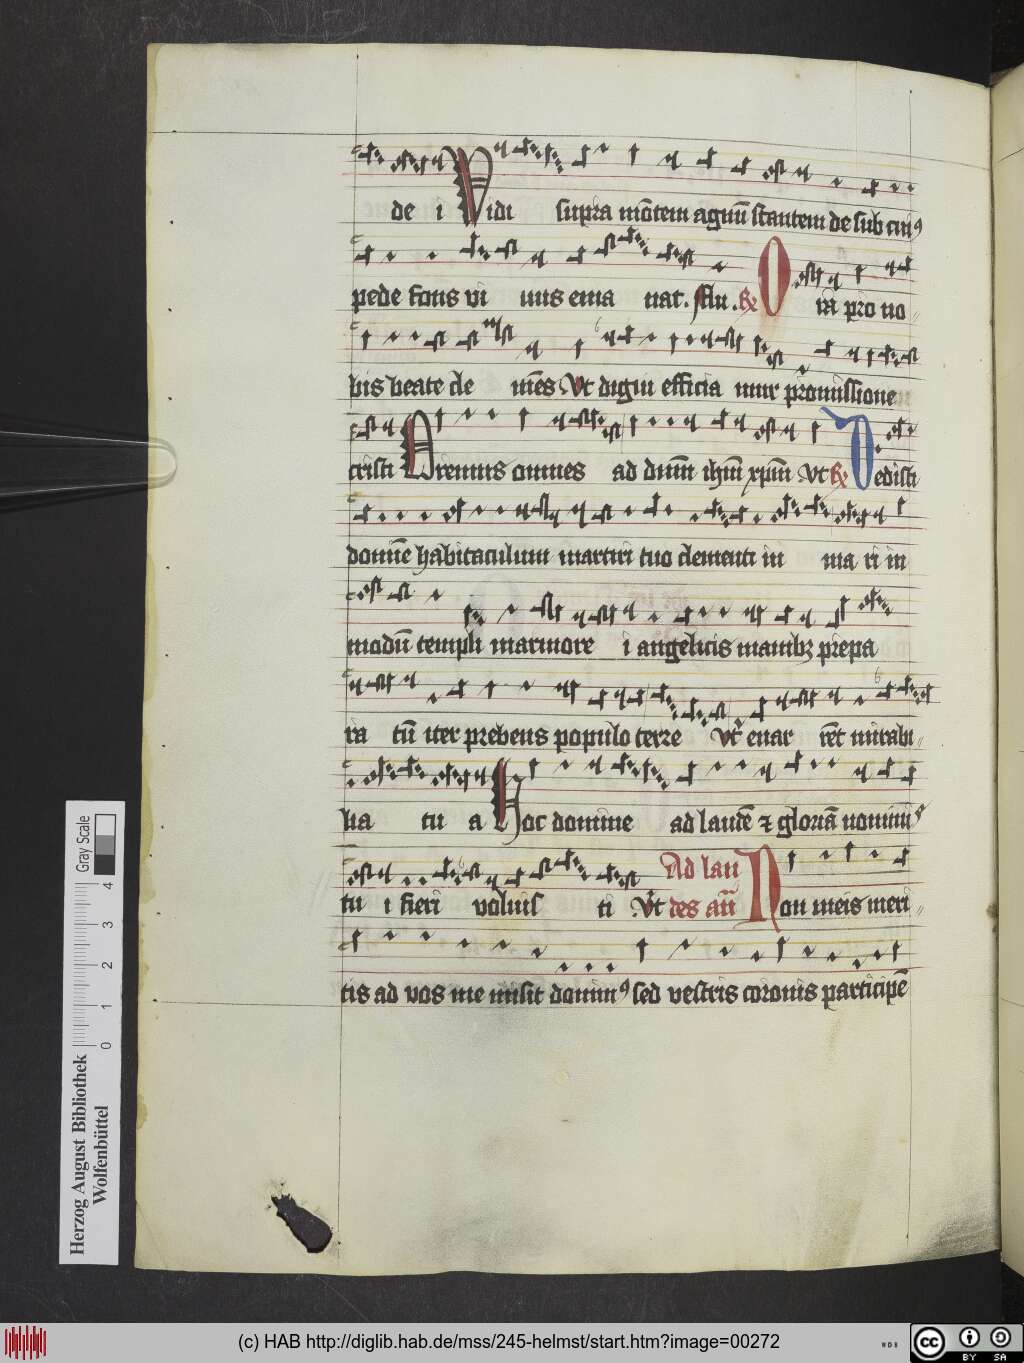 de i Vidi supra mōtem agnū stantem de sub cuiꝰ
pede fons vi uus ema nat. Flu. ℟ O ra pro no
bis beate cle mēs Vt digni efficia mur promissione
cristi Oremus omnes ad dnm̄ ihm̄ xpm̄ Vt ℟ Dedisti
domīe habitaculum martiri tuo clementi in ma ri in
modū templi marmore i angelicis manibꝫ prepa
ra tū iter prebens populo terre Vt enar rēt mirabi
lia tu a Hoc domine ad laudē ⁊ gloriā nominis
tu i fieri voluis ti Vt
Ad lau
des an̄ Non meis meri
tis ad vos me misit dominꝰ sed vestris coronis participē
Herzog August Bibliothek
Wolfenbüttel
0 1 2 3 4
Gray Scale
(c) HAB http://diglib.hab.de/mss/245-helmst/start.htm?image=00272
WDB
cc BY SA